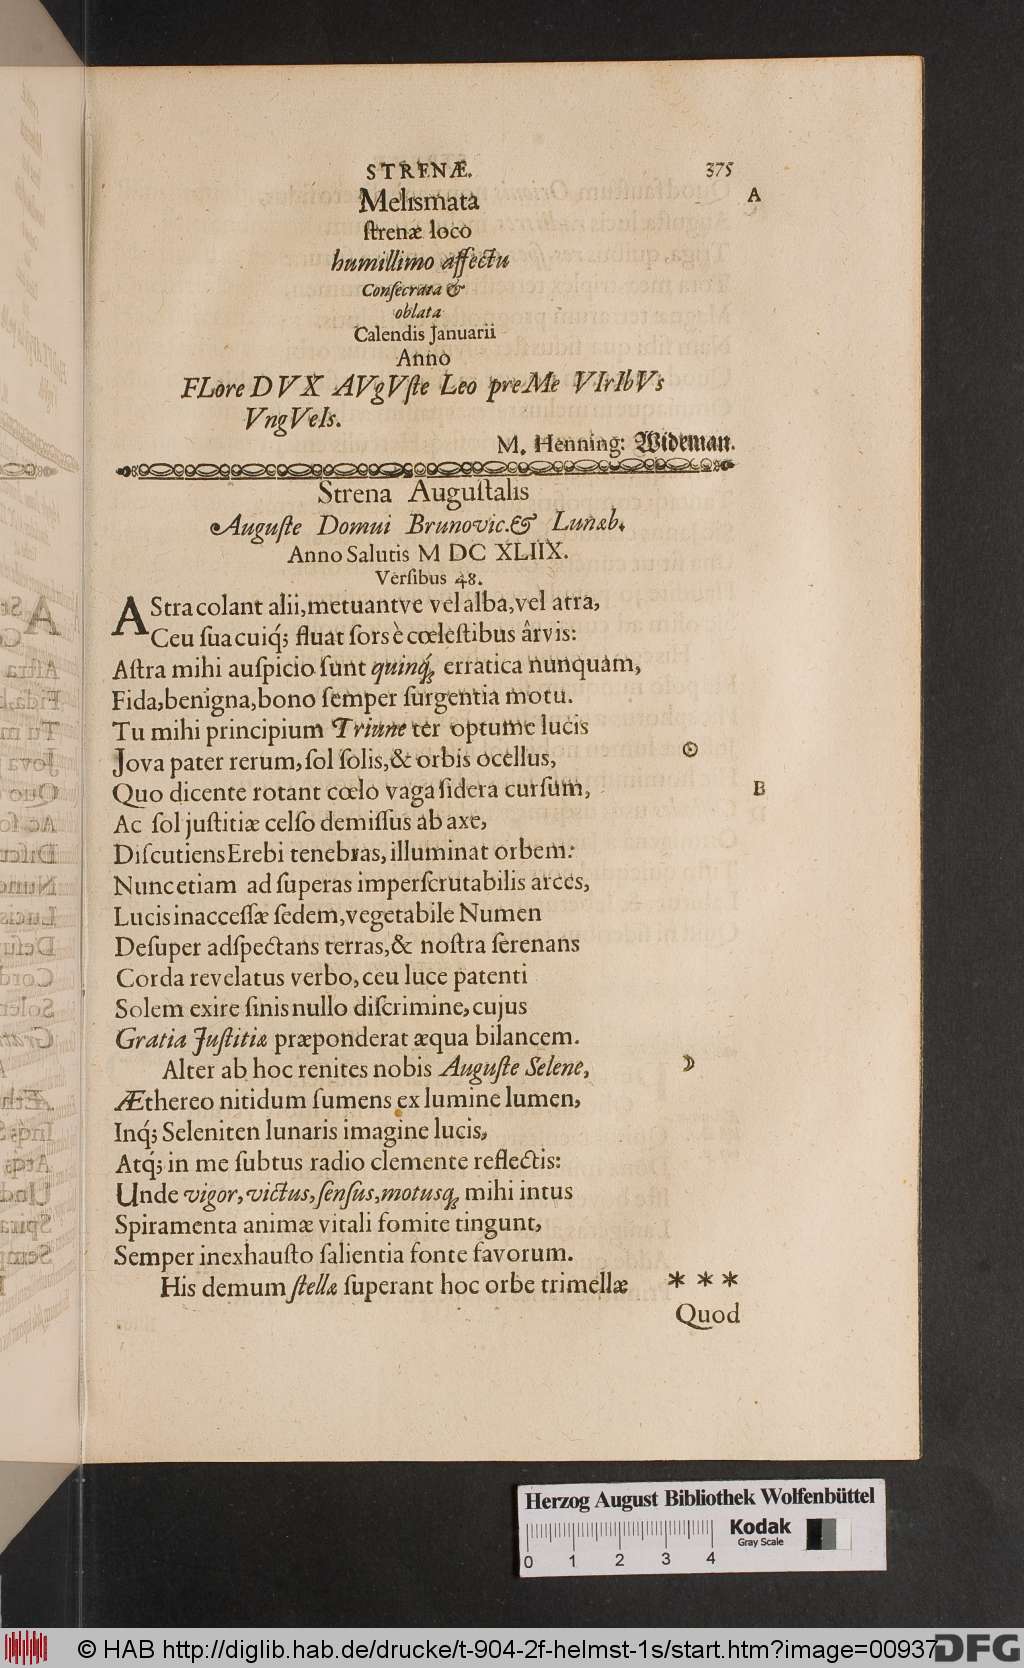 STRENÆ. 375
Melismata A
ſtrenæ loco
humillimo affectu
Conſecrata &
oblata
Calendis Januarii
Anno
FLore DVX AVgVſte Leo preMe VIrIbVs
VngVeIs.
M. Henning: Wideman.
Strena Auguſtalis
Auguſte Domui Brunovic. & Lunæb.
Anno Salutis M DC XLIIX.
Verſibus 48.
AStra colant alii, metuantve vel alba, vel atra,
Ceu ſua cuiq́; fluat ſors è cœleſtibus ârvis:
Aſtra mihi auſpicio ſunt quinq́; erratica nunquam,
Fida, benigna, bono ſemper ſurgentia motu.
Tu mihi principium Triune ter optume lucis
Jova pater rerum, ſol ſolis, & orbis ocellus, ☉
Quo dicente rotant cœlo vaga ſidera curſum, B
Ac ſol juſtitiæ celſo demiſſus ab axe,
Diſcutiens Erebi tenebras, illuminat orbem:
Nunc etiam ad ſuperas imperſcrutabilis arces,
Lucis inacceſſæ ſedem, vegetabile Numen
Deſuper adſpectans terras, & noſtra ſerenans
Corda revelatus verbo, ceu luce patenti
Solem exire ſinis nullo diſcrimine, cujus
Gratia Juſtitiæ præponderat æqua bilancem.
Alter ab hoc renites nobis Auguſte Selene, ☽
Æthereo nitidum ſumens ex lumine lumen,
Inq́; Seleniten lunaris imagine lucis,
Atq́; in me ſubtus radio clemente reflectis:
Unde vigor, victus, ſenſus, motusq́; mihi intus
Spiramenta animæ vitali fomite tingunt,
Semper inexhauſto ſalientia fonte favorum.
His demum ſtellæ ſuperant hoc orbe trimellæ * * *
Quod
Herzog August Bibliothek Wolfenbüttel
Kodak
Gray Scale
0 1 2 3 4
© HAB http://diglib.hab.de/drucke/t-904-2f-helmst-1s/start.htm?image=00937
DFG